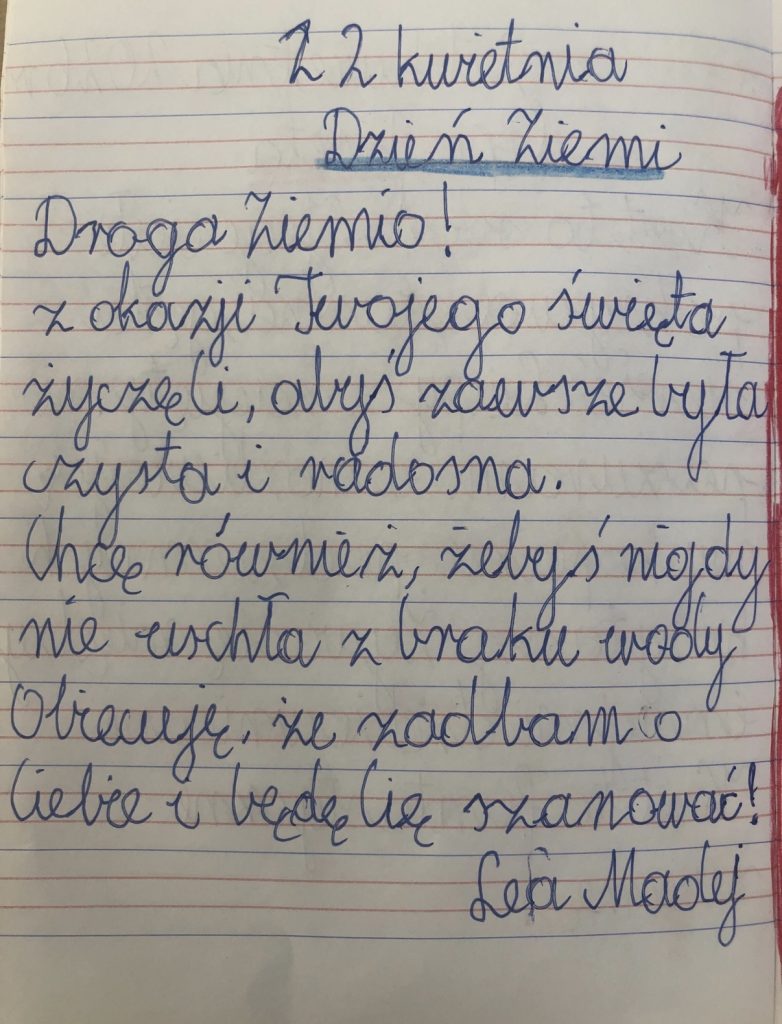 22 kwietnia
Dzień Ziemi
Droga Ziemio!
z okazji Twojego święta
życzę Ci, abyś zawsze była
czysta i radosna.
Chcę również, żebyś nigdy
nie uschła z braku wody
Obiecuję, że zadbam o
Ciebie i będę Cię szanować!
Madej